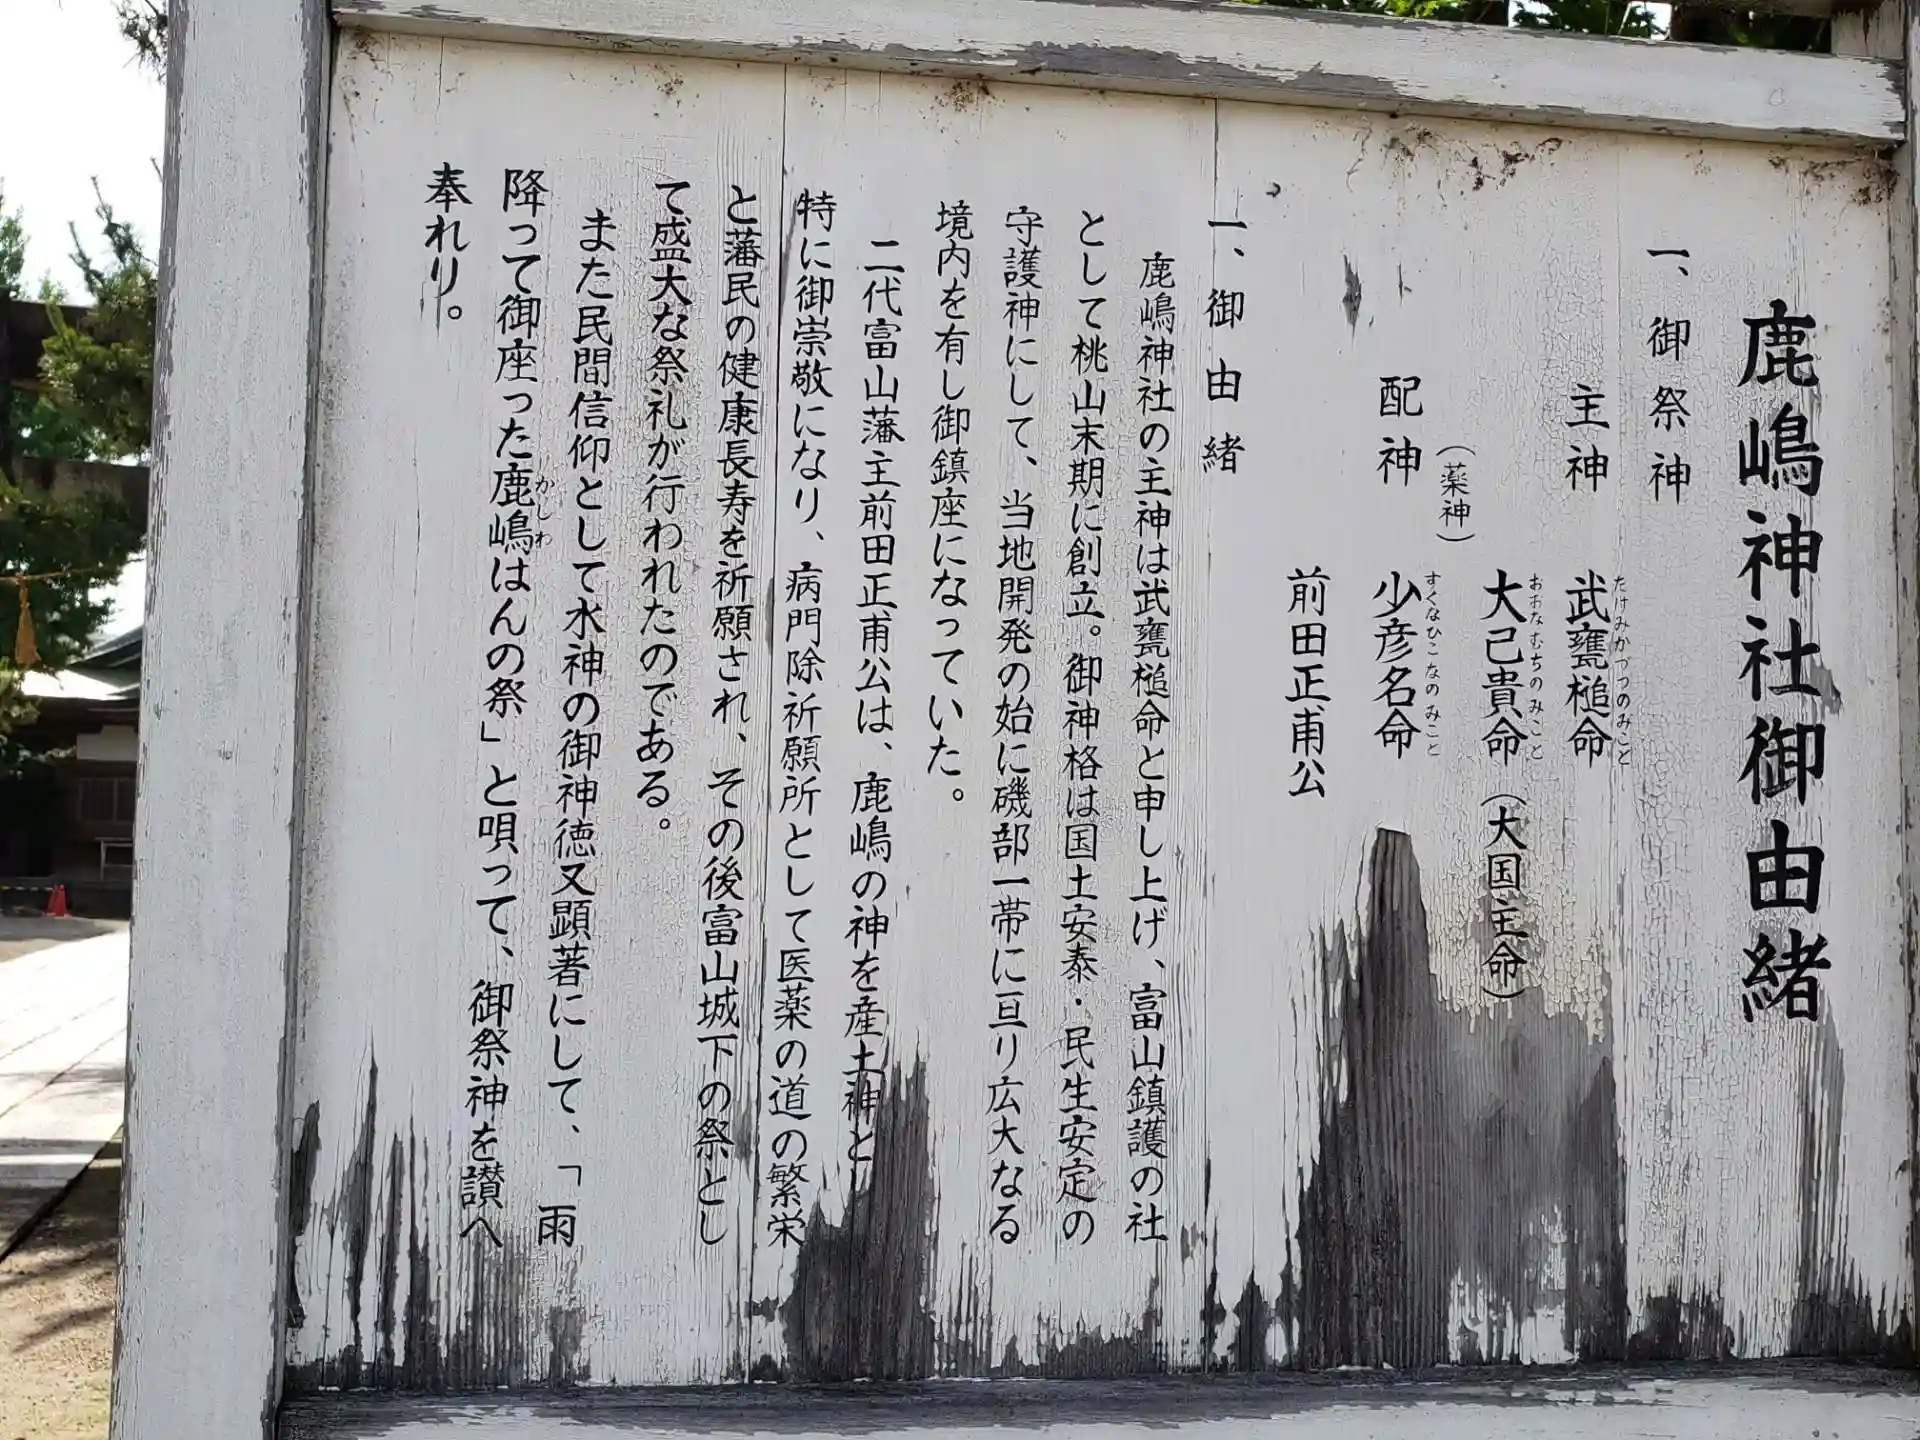 鹿嶋神社御由緒
一、御祭神
主神 武甕槌命
たけみかづつのみこと
大己貴命(大国主命)
おおなむちのみこと
(薬神)
配神 少彦名命
すくなひこなのみこと
前田正甫公
一、御由緒
鹿嶋神社の主神は武甕槌命と申し上げ、富山鎮護の社
として桃山末期に創立。御神格は国土安泰・民生安定の
守護神にして、当地開発の始に磯部一帯に亘り広大なる
境内を有し御鎮座になっていた。
二代富山藩主前田正甫公は、鹿嶋の神を産土神と
特に御崇敬になり、病門除祈願所として医薬の道の繁栄
と藩民の健康長寿を祈願され、その後富山城下の祭とし
て盛大な祭礼が行われたのである。
また民間信仰として水神の御神徳又顕著にして、「雨
降って御座った鹿嶋はんの祭」と唄って、御祭神を讃へ
かしわ
奉れり。